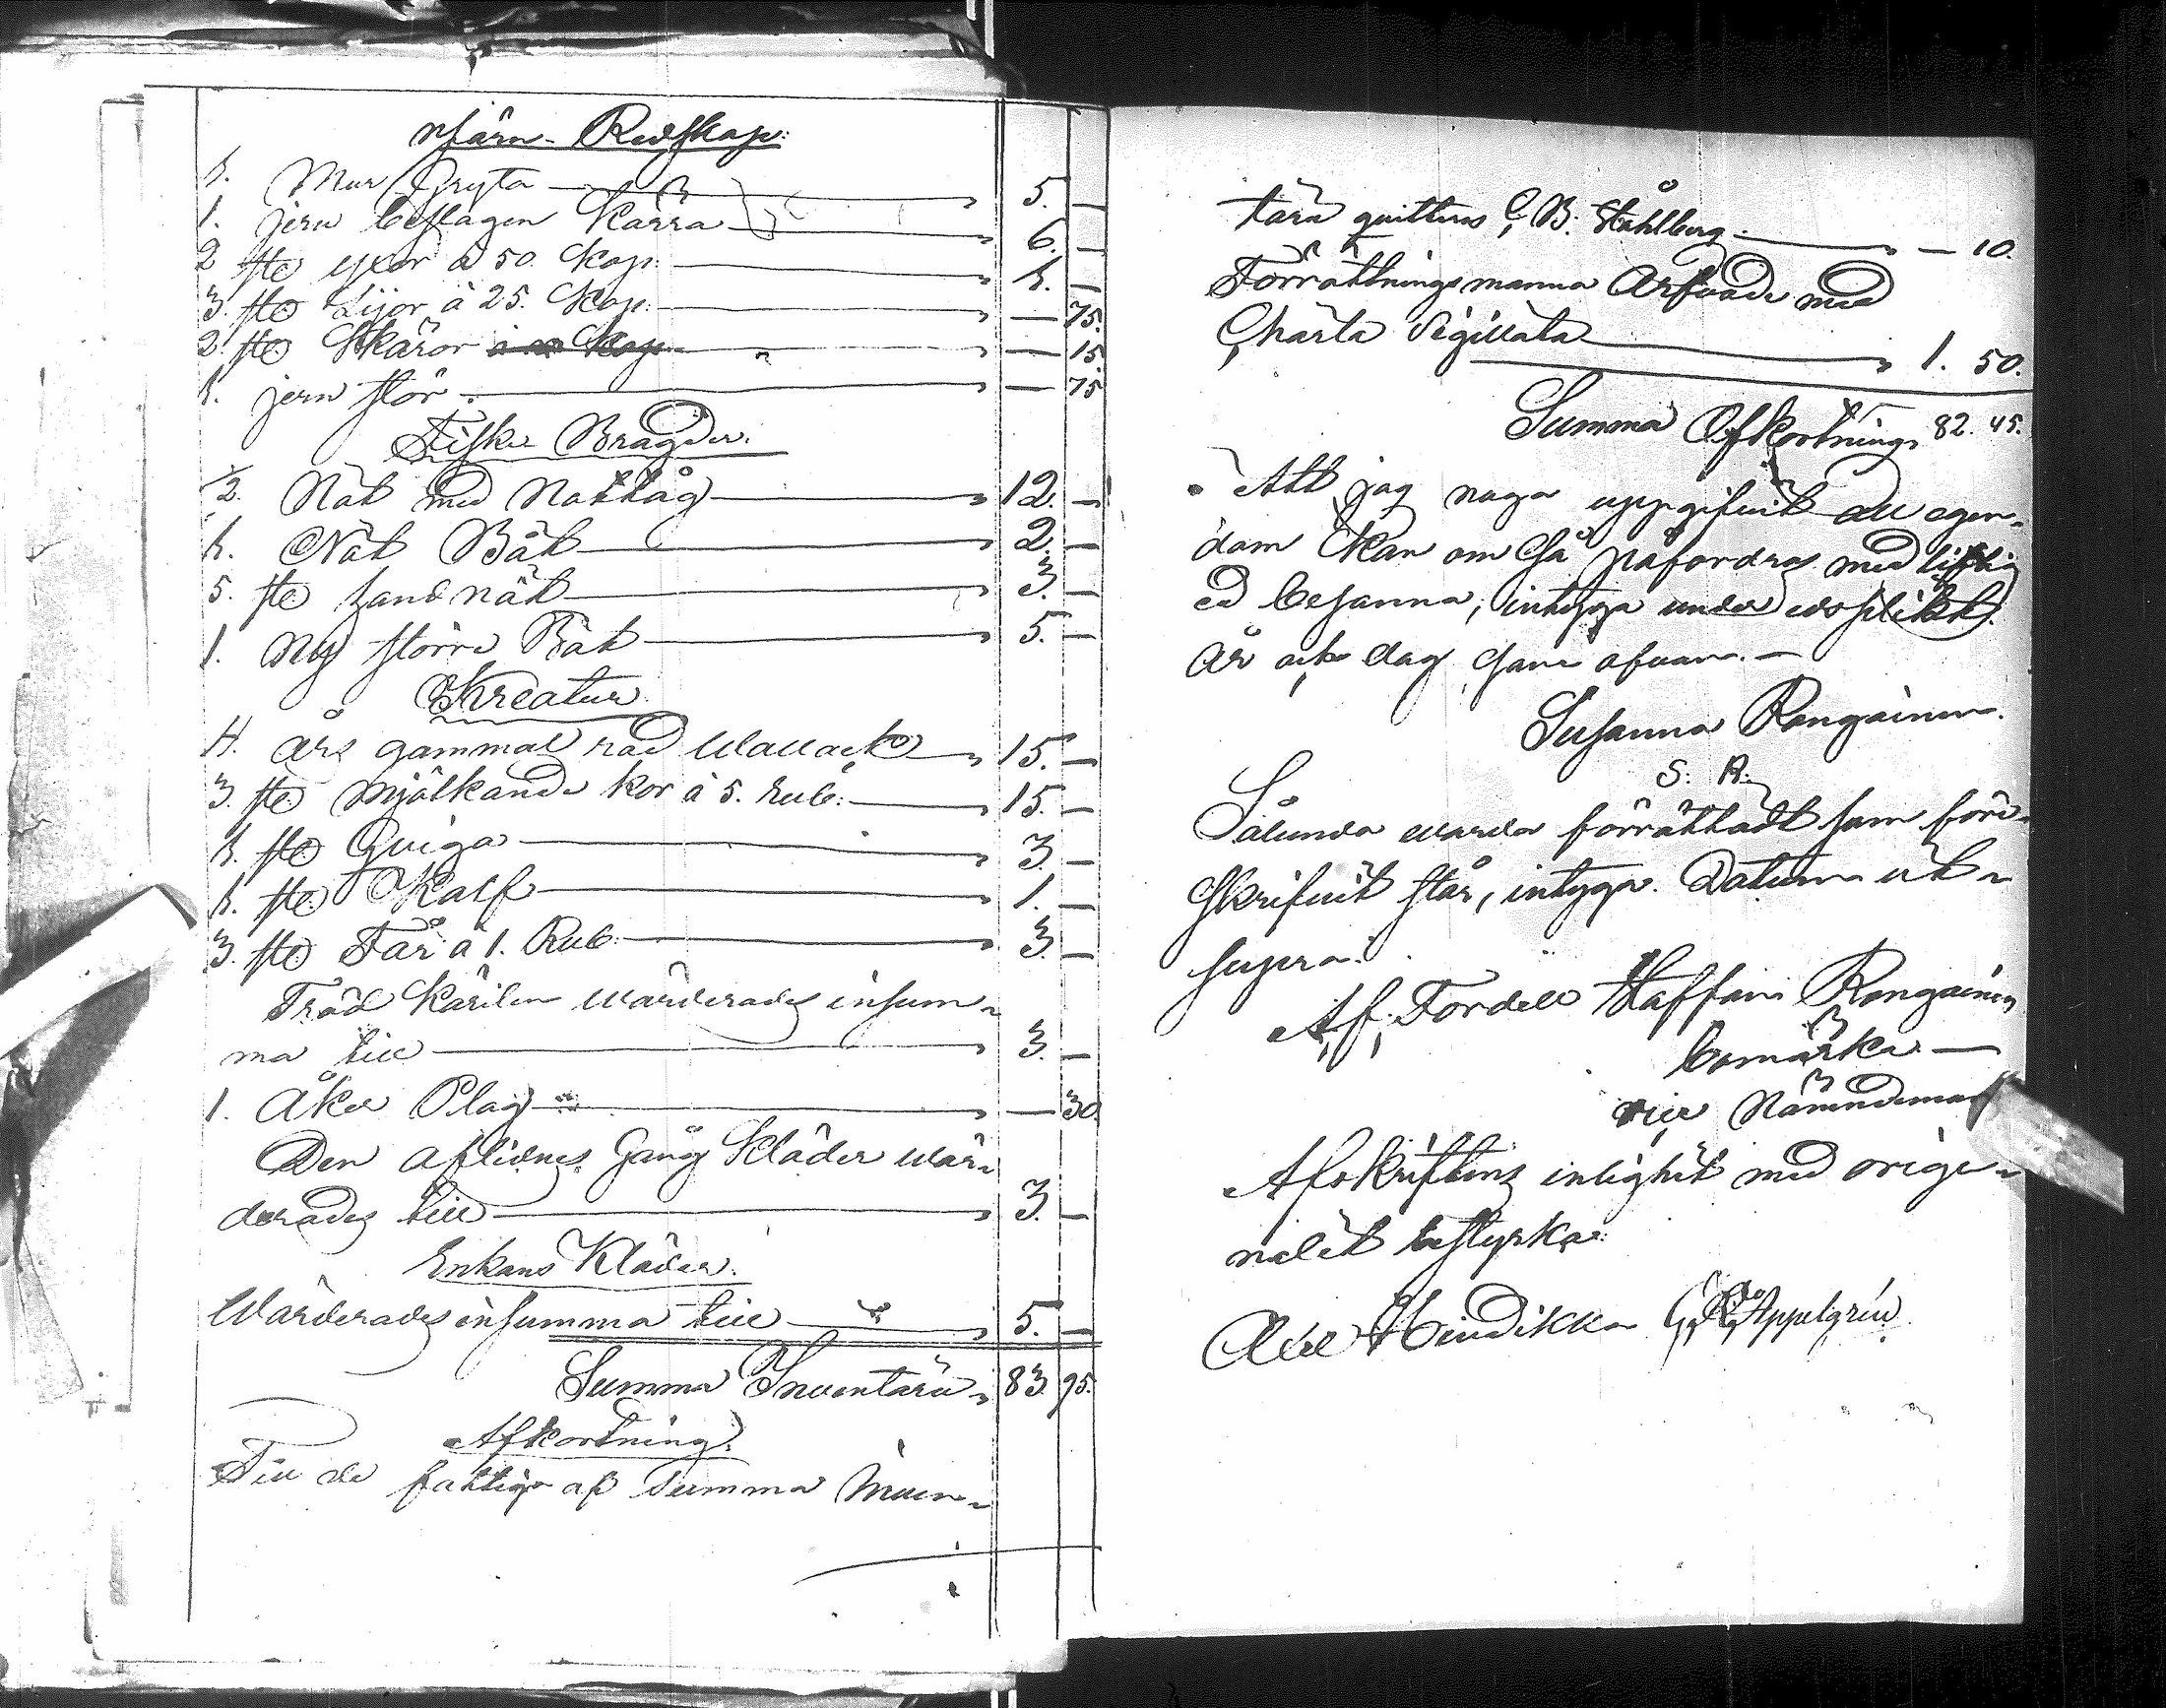 Järn-Redskap:
1. Mur Gryta 5. —
1. jern beslagen Kärra 6. —
2 st: yxor à 50. Kop: 1. —
3. st: Lijor à 25. Kop: — 75.
2. st: Skäror — 15.
1. jern stör. — 75
Fiske Bragder.
12. Nät med Nattåg 12. —
1. Nöt Båt 2. —
5. st: Land nät 3. —
1. Ny större Båt 5. —
Kreatur
4. Års gammal röd Wallack 15. —
3. st: Mjölkande kor à 5. Rub: 15. —
1. st: Qviga 3. —
1. st: Kalf 1. —
3. st: Får à 1. Rub: 3. —
Träd Kärilen wärderades insum-
ma till 3. —
1. Åker Plog — 30.
Den aflidnes Gång Kläder wär-
derades till 3. —
Enkans Kläder.
Wärderades insumma till 5. —
Summa Inventarii 83. 95.
Afkortning.
Till de fattiga af Summa Inven-
tarii quittens C, B. Ståhlberg. — 10.
Förrättningsmanna Arfvode med
Charta Sigillata 1. 50.
Summa Afkortning 82. 45.
Att jag noga uppgifvit all egen-
dom kan om så påfordras med liflig
ed besanna, intyga under edsplikt.
År och dag som ofvan. —
Susanna Rongainen.
S. R.
Sålunda warda förrättadt som före-
skrifvit står, intyga. Datum ut
supra.
Af, Fordell Staffan Rongainen
bomärke —
vice Nämndeman
Afskriftens enlighet med origi-
nalet bestyrka:
Abel Hindikka Appelgrén